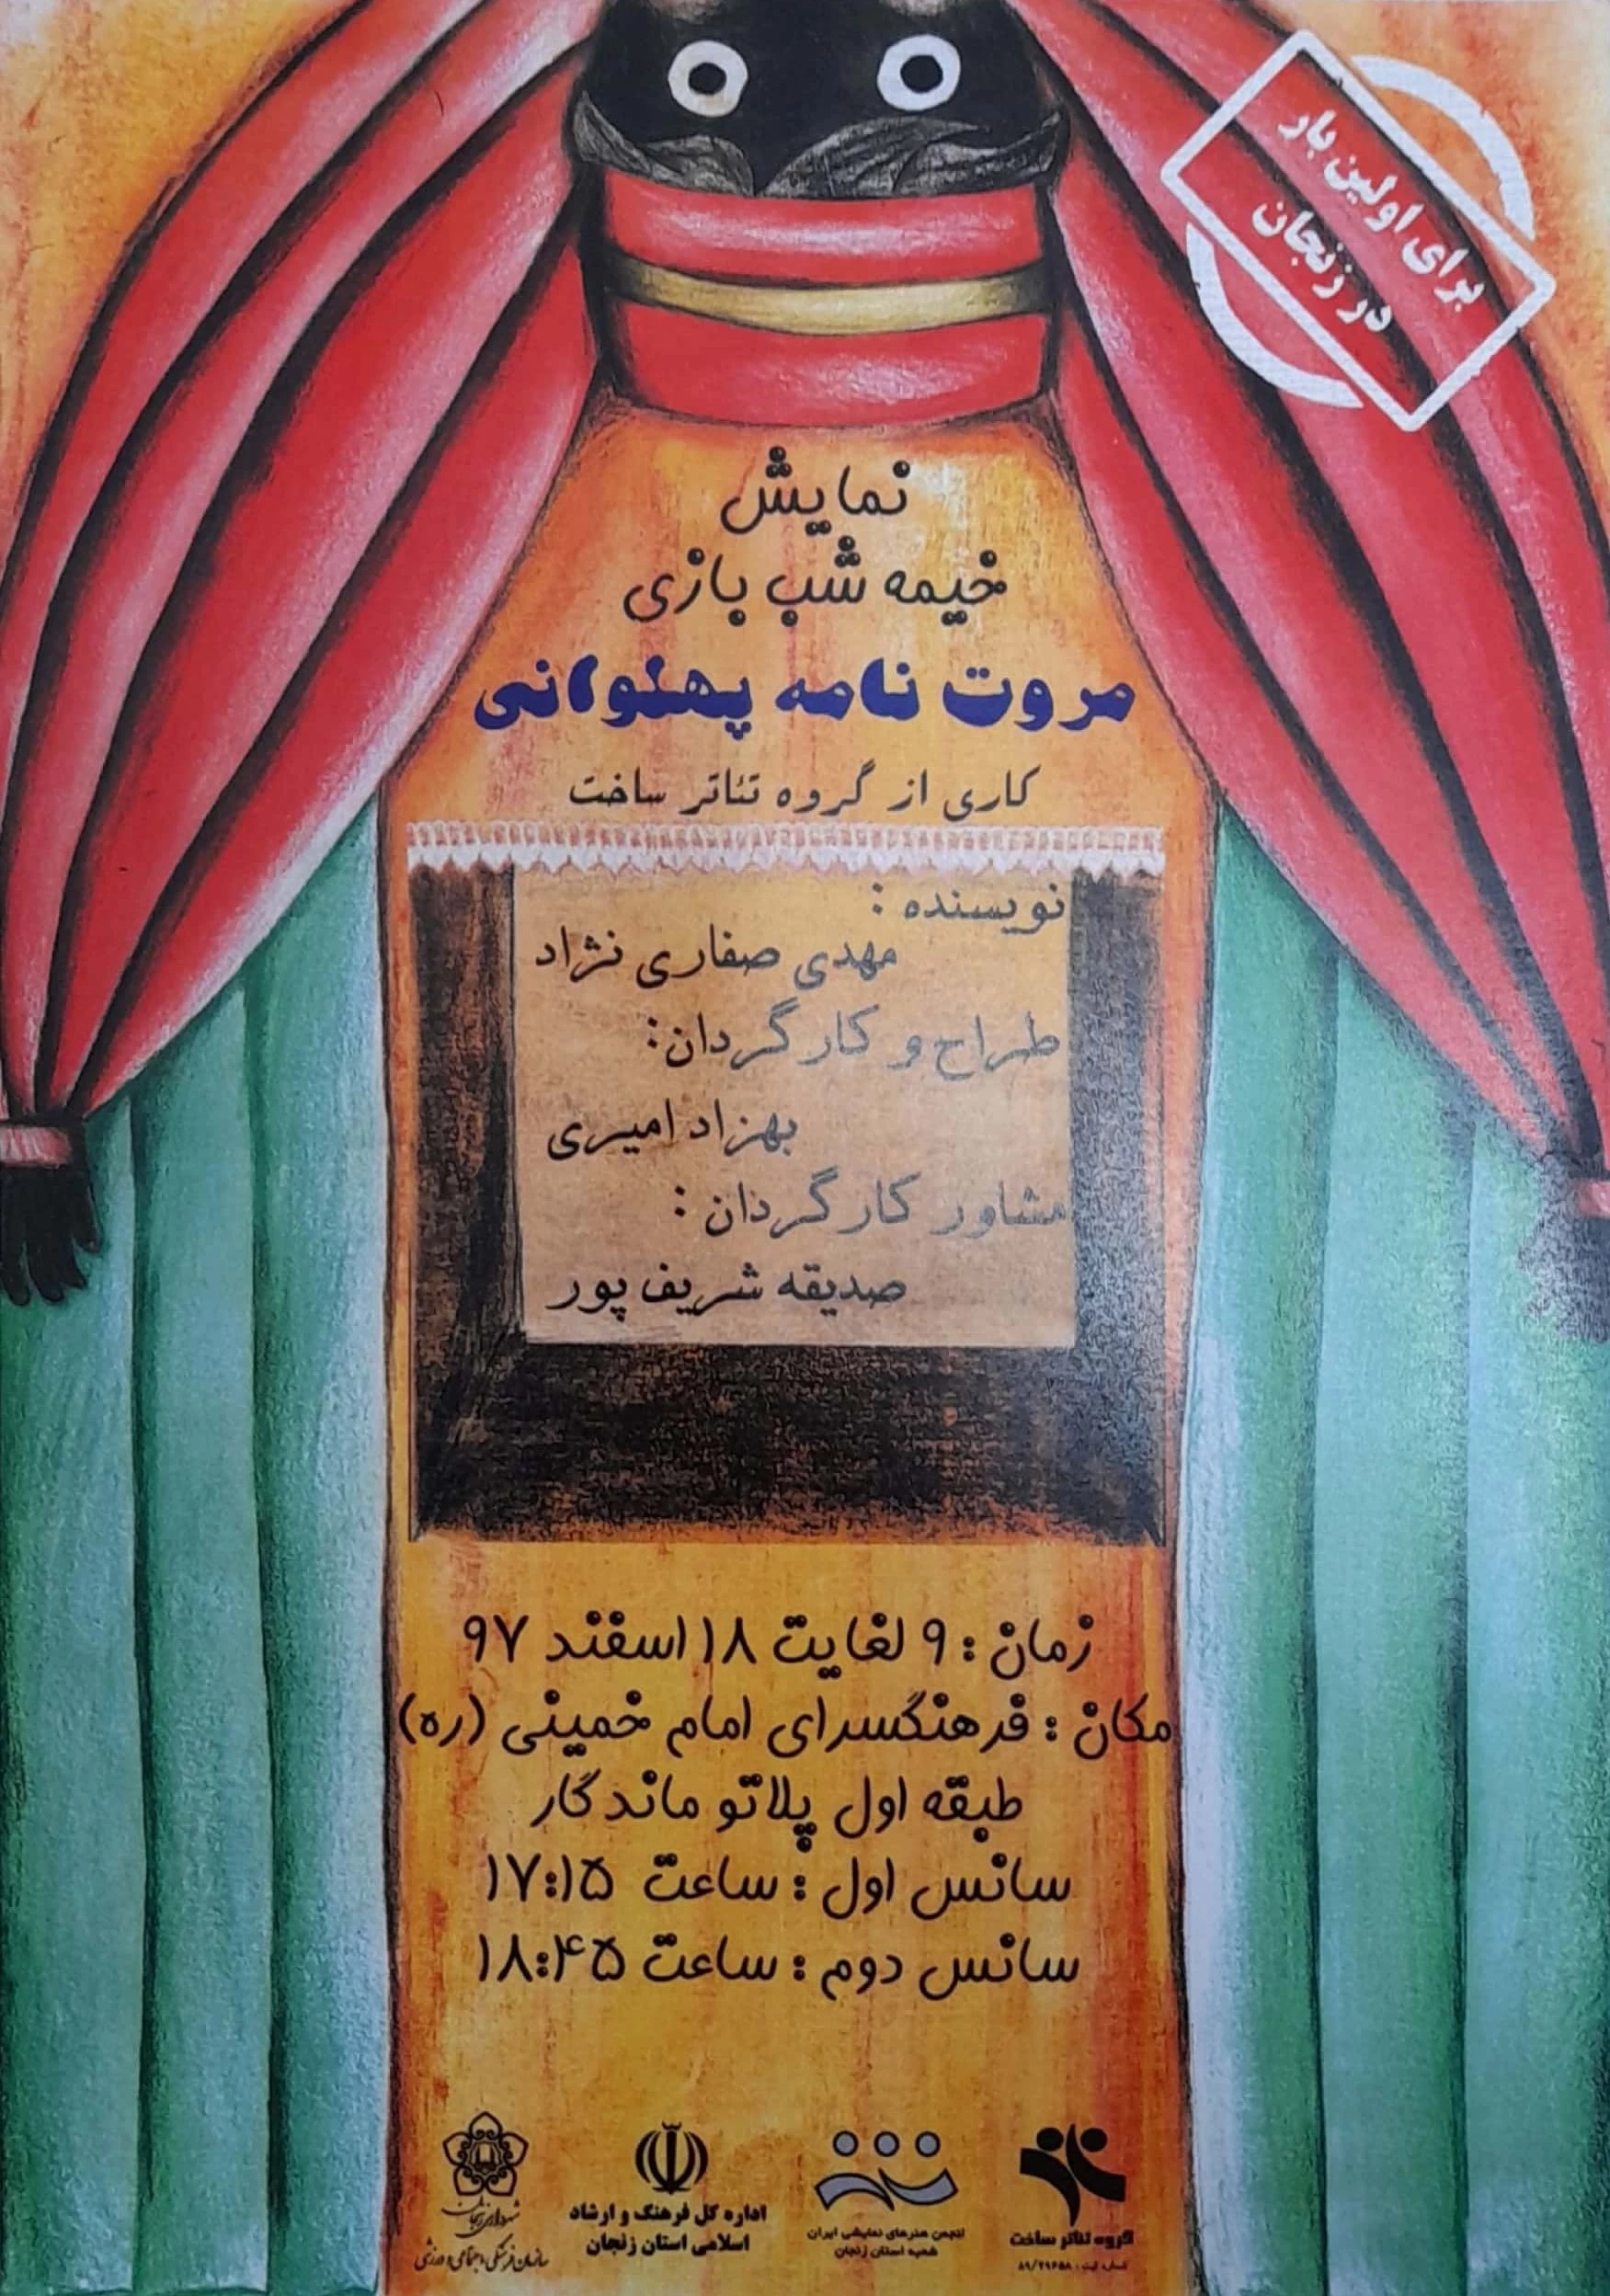 برای اولین بار
در زنجان
نمایش
خیمه شب بازی
مروت نامه پهلوانی
کاری از گروه تئاتر ساخت
نویسنده :
مهدی صفاری نژاد
طراح و کارگردان:
بهزاد امیری
مشاور کارگردان :
صدیقه شریف پور
زمان : ۹ لغایت ۱۸ اسفند ۹۷
مکان : فرهنگسرای امام خمینی (ره)
طبقه اول پلاتو ماندگار
سانس اول : ساعت ۱۷:۱۵
سانس دوم : ساعت ۱۸:۴۵
گروه تئاتر ساخت
شماره ثبت : ۸۹/۲۹۶۵۸
انجمن هنرهای نمایشی ایران
شعبه استان زنجان
اداره کل فرهنگ و ارشاد
اسلامی استان زنجان
شهرداری زنجان
سازمان فرهنگی، اجتماعی و ورزشی